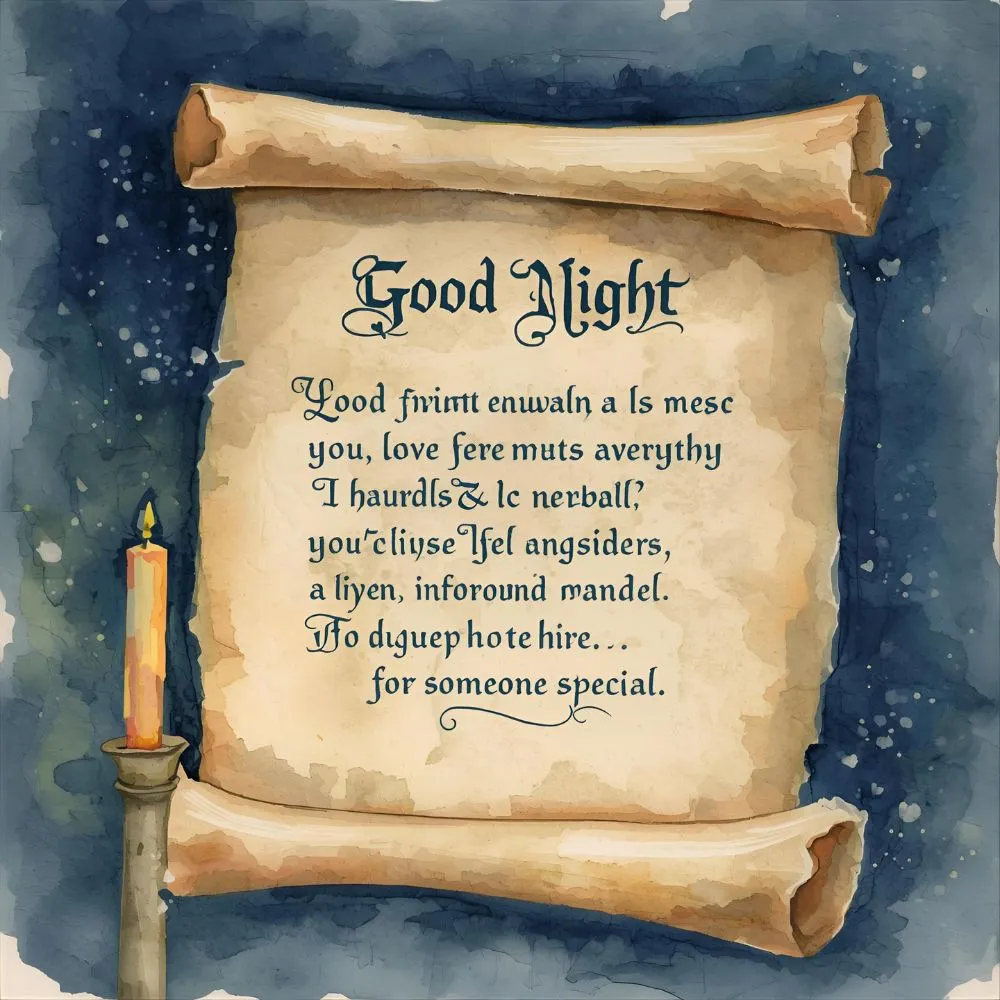 Good Night
Good frirtt enuwaln a ls mesc
you, love fere muts averythy
I haurdls & lc nerball?
you cliyse lfel angsiders,
a liyen, inforound mandel.
Fo dıguep hote hire...
for someone special.